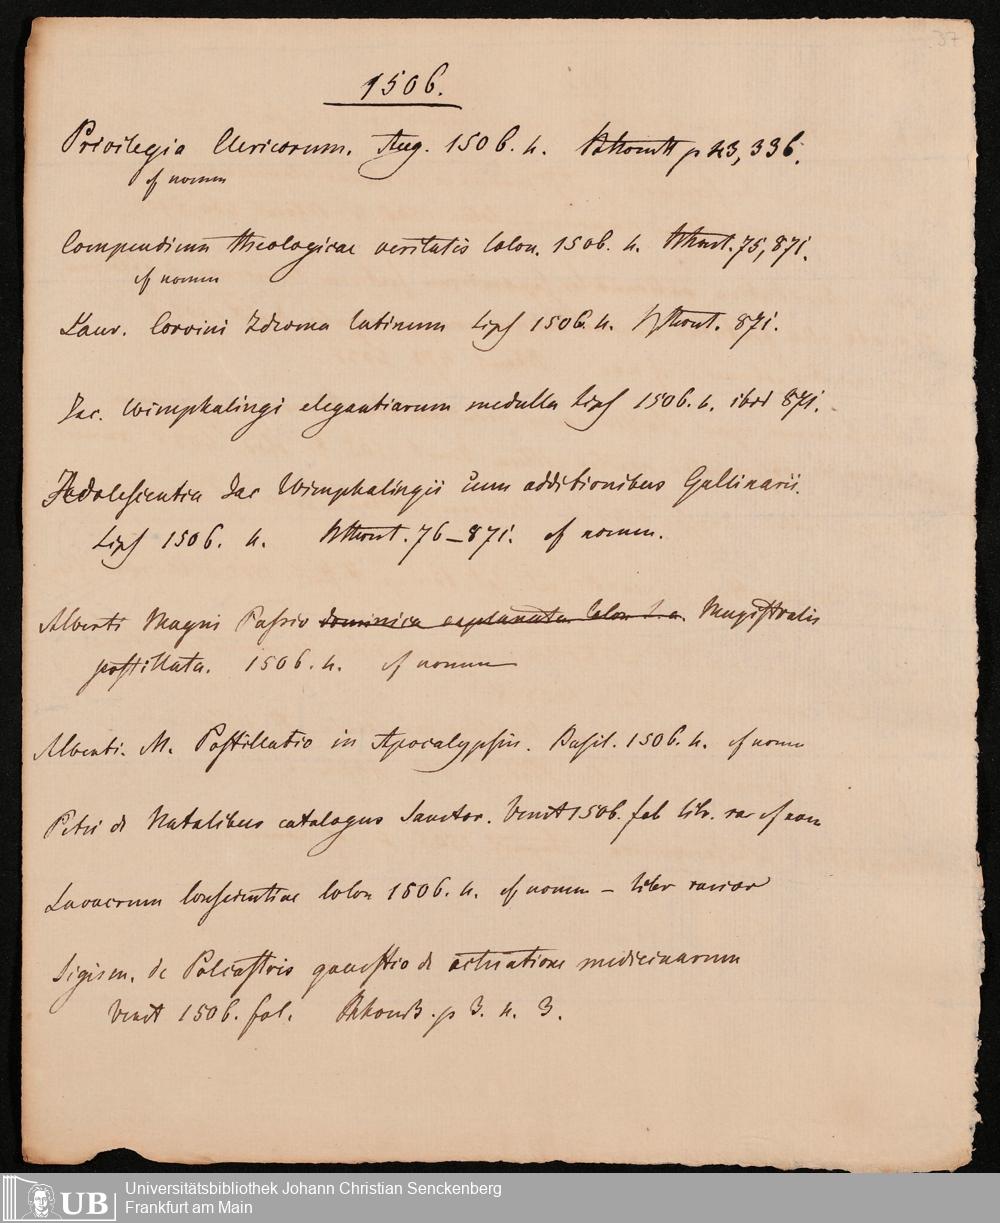 37
1506.
Privilegia Clericorum. Aug. 1506. 4. p 43, 336.
cf nomen
Compendium theologicae veritatis Colon. 1506. 4. 75, 871.
cf nomen
Laur. Corvini Idioma latinum Lips 1506. 4. 871.
Jac. Wimphalingi elegantiarum medulla Lips 1506. 4. ibid 871.
Adolescentia Jac Wimphalingii cum additionibus Gallinarii.
Lips 1506. 4. 76-871. cf nomen.
Alberti Magni Passio dominica explanata Colon s. a. Magistralis
postillata. 1506. 4. cf nomen
Alberti. M. Postillatio in Apocalypsin. Basil. 1506. 4. cf nomen
Petri de Natalibus catalogus Sanctor. Venet 1506. fol lib. rar cf nom
Lavacrum conscientiae Colon 1506. 4. cf nomen - liber rarior
Sigism. de Polcastris quaestio de actuatione medicinarum
Venet 1506. fol. p 3. n. 3.
Universitätsbibliothek Johann Christian Senckenberg
Frankfurt am Main
UB